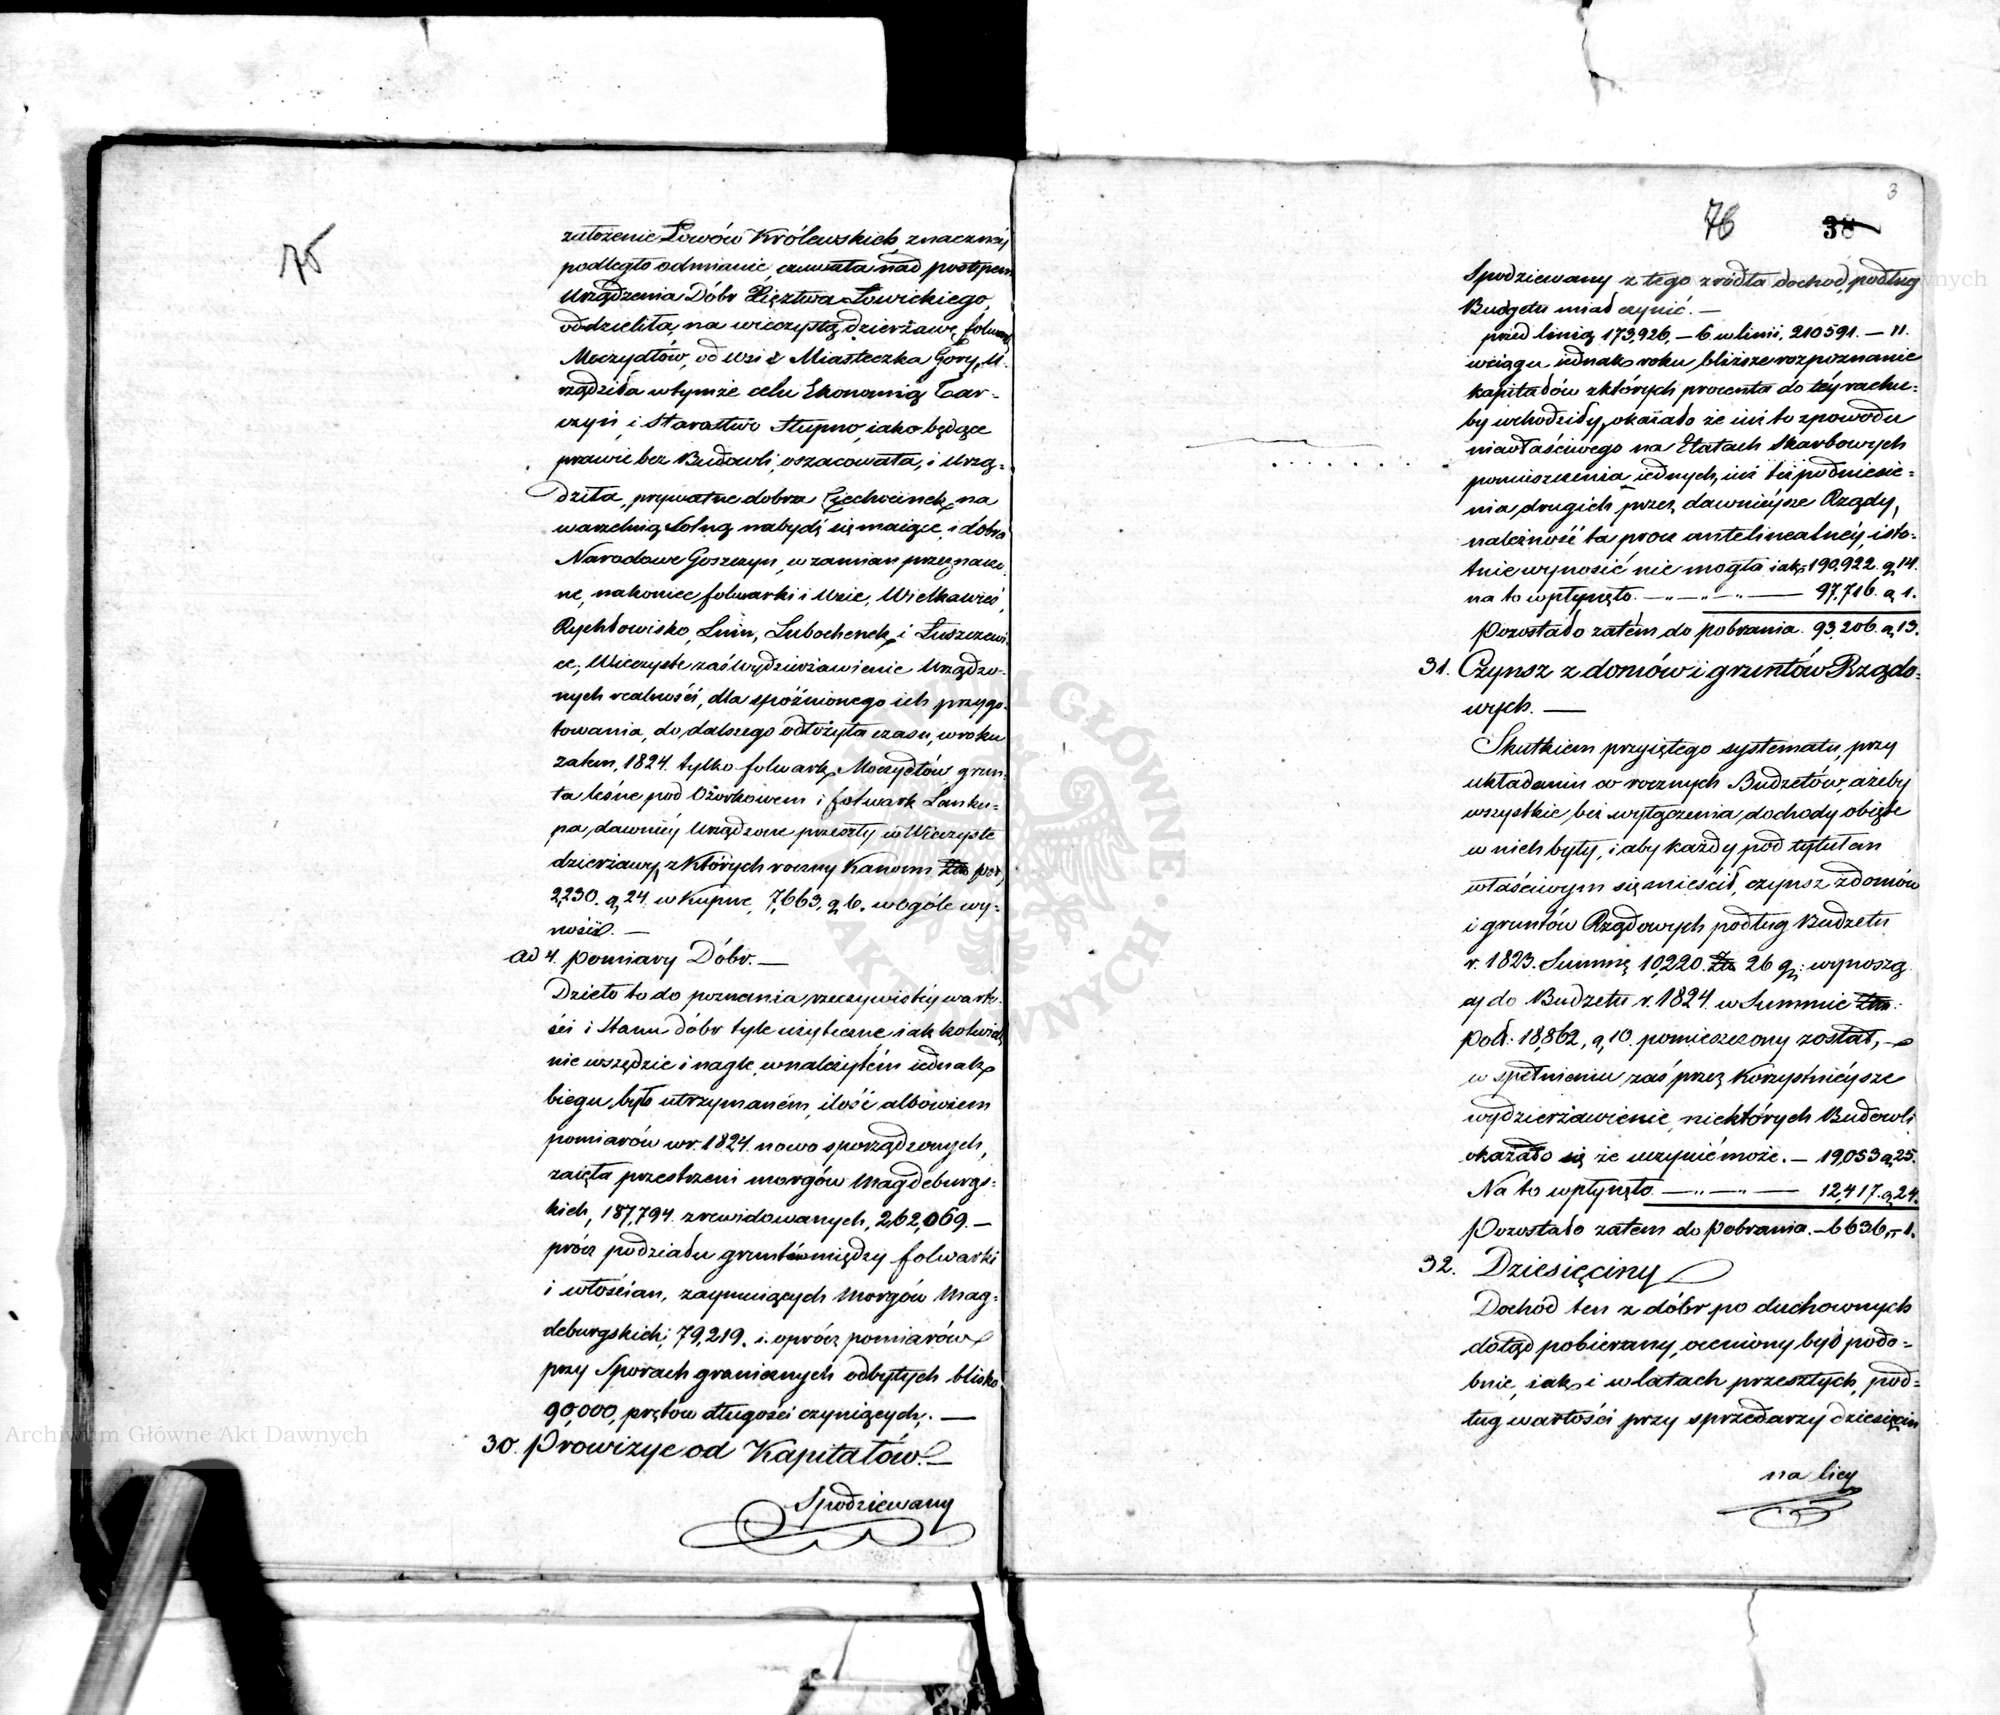 75
założenie Łowów Królewskich, znacznéy
podległo odmianie, czuwała nad postępem
Urządzenia Dóbr Xięztwa Łowickiego,
oddzieliła na wieczystą dzierżawę folwark
Moczydłów, od wsi i Miasteczka Gory, U-
rządziła w tymże celu Ekonomią Tar-
czyn, i Starostwo Słupno, iako będące
prawie bez Budowli, oszacowała, i Urzą-
dziła, prywatne dobra Ciechocinek, na
warzelnią Solną nabydź się maiące, i dobra
Narodowe Goszczyn, w zamian przeznaczo-
ne, nakoniec folwarki i Wsie, Wielkawieś,
Rychłowisko, Lnin, Lubochenek, i Luszczewi-
ce, Wieczyste zaś Wydzierżawienie Urządzo-
nych realności, dla spóźnionego ich przygo-
towania, do dalszego odłożyła czasu, w roku
zatem, 1824. tylko folwark Moczydłów, grun-
ta leśne pod Ożorkowem i folwark Lanku-
pa, dawniéy Urządzone przeszły w Wieczyste
dzierżawy, z których roczny Kanon Złp. por,
2,230. g. 24. w Kupne, 7,663. g. 6. w ogóle wy-
nosił. —
ad 4. Pomiary Dóbr. —
Dzieło to do poznania rzeczywistéy warto-
ści i Stanu dóbr tyle użyteczne, iakkolwiek
nie wszędzie i nagle, w należytém iednak
biegu było utrzymaném, ilość albowiem
pomiarów w r. 1824. nowo sporządzonych,
zaięła przestrzeni morgów Magdeburgs-
kich, 187,794. zrewidowanych, 262,069. —
prócz podziału gruntów między folwarki
i włościan, zaymuiących Morgów Mag-
deburgskich; 79,219. i oprócz pomiarów
przy Sporach granicznych odbytych blisko
90,000, prętów długości czyniących. —
30. Prowizye od Kapitałów. —
Spodziewany
3
76
38
Spodziewany z tego zródła dochod, podług
Budgetu miał czynić. —
przed linią 173,926, — 6. w linii, 210591. — 11.
w ciągu iednak roku, bliższe rozpoznanie
kapitałów z których procenta do téy rachu-
by wchodziły, okazało że iuż to z powodu
niewłaściwego na Etatach Skarbowych
pomieszczenia iednych, iuż téż podniesie-
nia drugich przez dawnieysze Rządy,
należność ta prou antelinealnéy, isto-
tnie wynosić nie mogła iak 190,922. g. 14.
na to wpłynęło. — „ — „ — „ — 97,716. g. 1.
Pozostało zatém do pobrania. 93,206. g. 13.
31. Czynsz z domów i gruntów Rządo-
wych. —
Skutkiem przyiętego systematu, przy
układaniu co rocznych Budżetów, ażeby
wszystkie bez wyłączenia dochody obięte
w nich były, i aby każdy pod tytułem
właściwym się mieścił, czynsz z domów
i gruntów Rządowych podług Budżetu
r. 1823. Summę 10,220. Złp. 26 g. wynoszą
cy do Budżetu r. 1824. w Summie Złp.
Pol. 18,862, g. 10. pomieszczony został, —
w spełnieniu zaś przez Korzystniéysze
wydzierżawienie niektórych Budowli
okazało się że uczynić może. — 19,053 g. 25.
Na to wpłynęło. — „ — „ — 12,417. g. 24.
Pozostało zatem do Pobrania. — 6636, „ 1.
32. Dziesięciny
Dochód ten z dóbr po duchownych
dotąd pobierany, oceniony był podo-
bnie, iak i w latach przeszłych, pod-
ług wartości przy sprzedarzy dziesięcin
na licy
Archiwum Główne Akt Dawnych